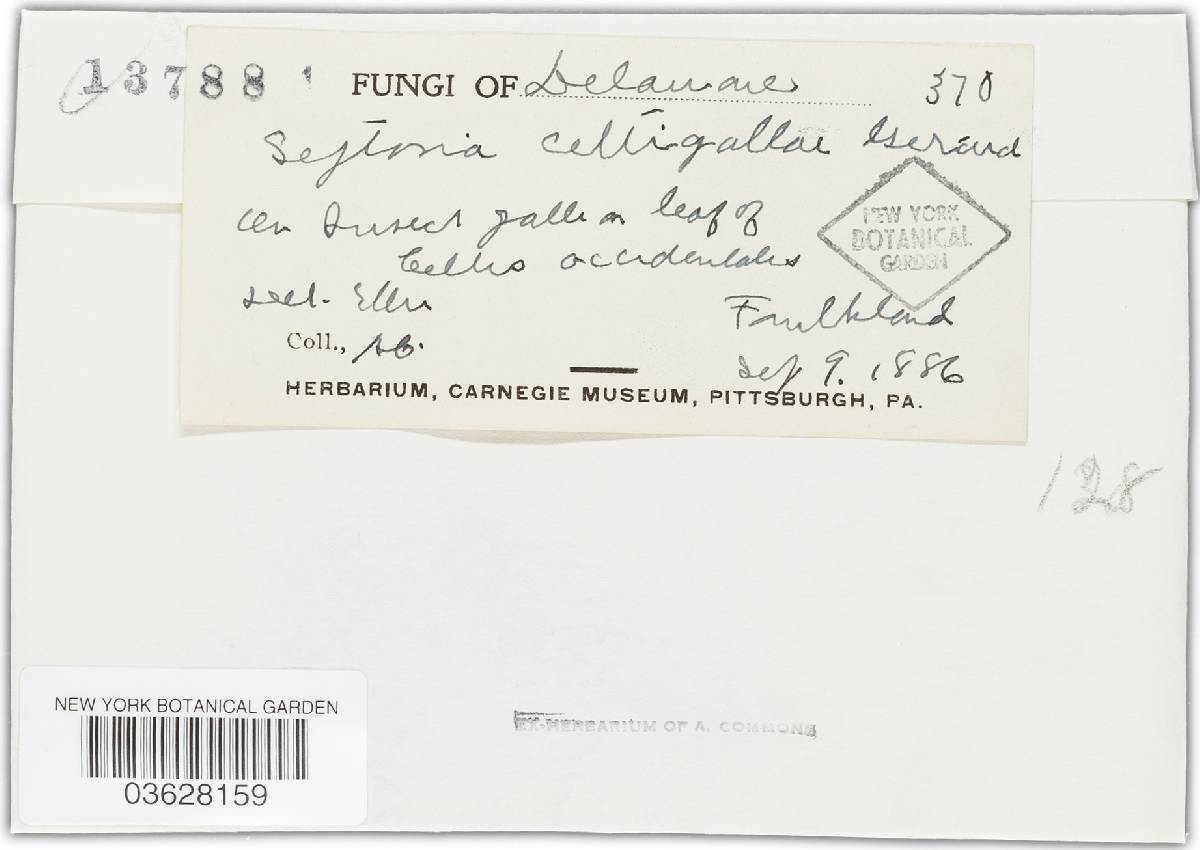 13788
FUNGI OF Delaware 370
Septoria celtigallae Gerard
on Insect galls on leaf of
Celtis occidentalis
NEW YORK
BOTANICAL
GARDEN
det. Ellis
Faulkland
Coll.,
Sep 9. 1886
HERBARIUM, CARNEGIE MUSEUM, PITTSBURGH, PA.
128
NEW YORK BOTANICAL GARDEN
03628159
EX-HERBARIUM OF A. COMMONS